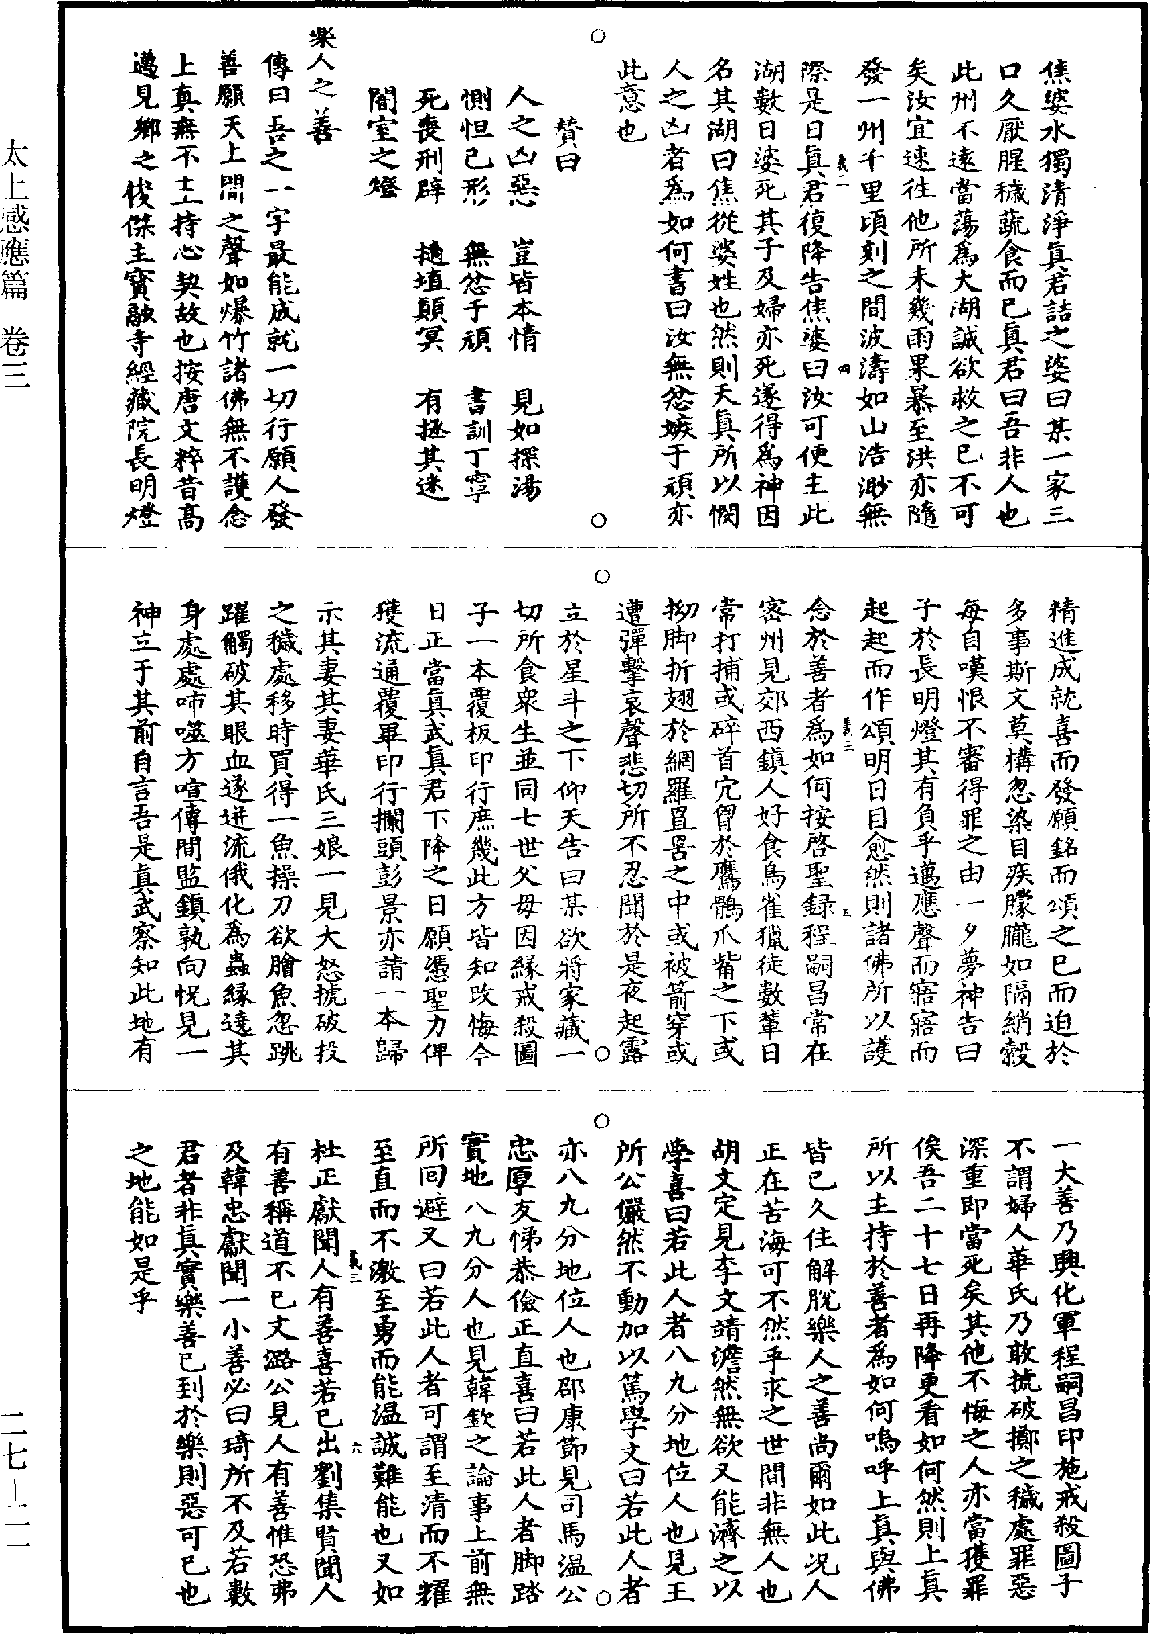 太上感應篇　卷三
焦婆水獨清淨真君詰之婆曰某一家三
口久厭腥穢蔬食而已真君曰吾非人也
此州不遠當蕩爲大湖誠欲救之已不可
矣汝宜速往他所未幾雨果暴至洪亦隨
發一州千里頃刻之間波濤如山浩渺無
際是日真君復降告焦婆曰汝可便主此
湖數日婆死其子及婦亦死遂得爲神因
名其湖曰焦從婆姓也然則天真所以憫
人之凶者爲如何書曰汝無忿嫉于頑亦
此意也
贊曰
人之凶惡　豈皆本情　見如探湯
惻怛已形　無忿于頑　書訓丁寧
死喪刑辟　擿埴顛冥　有拯其迷
闇室之燈
樂人之善
傳曰吾之一字最能成就一切行願人發
善願天上聞之聲如爆竹諸佛無不護念
上真無不主持心契故也按唐文粹昔高
邁見鄉之俊傑主寳融寺經藏院長明燈
精進成就喜而發願銘而頌之已而迫於
多事斯文莫構忽染目疾朦朧如隔綃縠
每自嘆恨不審得罪之由一夕夢神告曰
子於長明燈其有負乎邁應聲而寤寤而
起起而作頌明日目愈然則諸佛所以護
念於善者爲如何按啓聖録程嗣昌常在
密州見郊西鎮人好食鳥雀獵徒數輩日
常打捕或碎首穴胷於鷹鶻爪觜之下或
拗脚折翅於網羅罝罟之中或被箭穿或
遭彈擊哀聲悲切所不忍聞於是夜起露
立於星斗之下仰天告曰某欲將家藏一
切所食衆生並同七世父母因緣戒殺圖
子一本覆板印行庶幾此方皆知改悔今
日正當真武真君下降之日願憑聖力俾
獲流通覆畢印行攔頭彭景亦請一本歸
示其妻其妻華氏三娘一見大怒搋破投
之穢處移時買得一魚操刀欲膾魚忽跳
躍觸破其眼血遂迸流俄化為蟲緣遶其
身處處咂噬方喧傳間監鎮孰向恍見一
神立于其前自言吾是真武察知此地有
一大善乃興化軍程嗣昌印施戒殺圖子
不謂婦人華氏乃敢搋破擲之穢處罪惡
深重即當死矣其他不悔之人亦當獲罪
俟吾二十七日再降更看如何然則上真
所以主持於善者為如何嗚呼上真與佛
皆已久住解脫樂人之善尚爾如此况人
正在苦海可不然乎求之世間非無人也
胡文定見李文靖澹然無欲又能濟之以
學喜曰若此人者八九分地位人也見王
所公儼然不動加以篤學文曰若此人者
亦八九分地位人也邵康節見司馬温公
忠厚友悌恭儉正直喜曰若此人者脚踏
實地八九分人也見韓欽之論事上前無
所回避又曰若此人者可謂至清而不耀
至直而不激至勇而能温誠難能也又如
杜正獻聞人有善喜若已出劉集賢聞人
有善稱道不已文潞公見人有善惟恐弗
及韓忠獻聞一小善必曰琦所不及若數
君者非真實樂善已到於樂則惡可已也
之地能如是乎
二七—二一